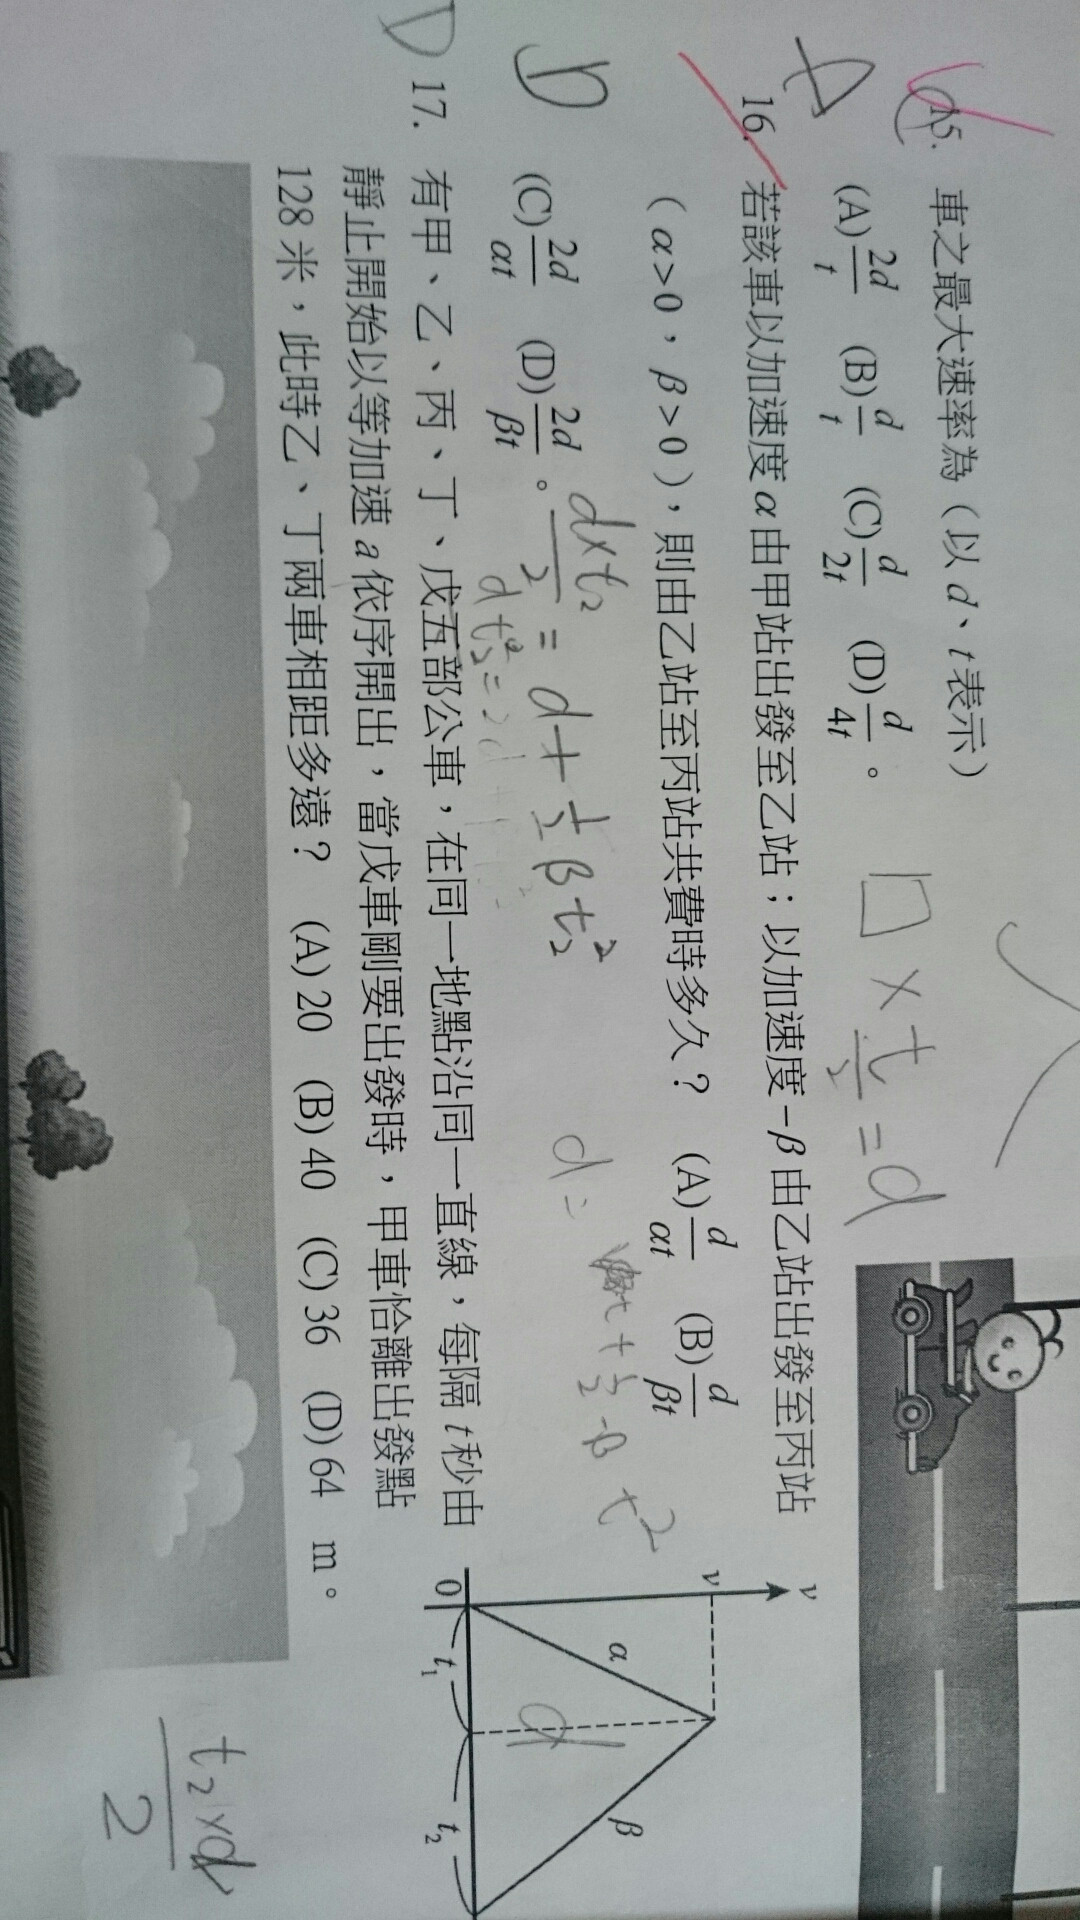 A 15. 車之最大速率為（以 d、t 表示）
(A) 2d/t (B) d/t (C) d/2t (D) d/4t 。
□ × t/2 = d
D 16. 若該車以加速度 α 由甲站出發至乙站；以加速度 -β 由乙站出發至丙站
（α>0，β>0），則由乙站至丙站共費時多久？ (A) d/αt (B) d/βt
(C) 2d/αt (D) 2d/βt 。
d×t₂/2 = d + 1/2 βt₂²
d =
t + 1/2 -β t²
D 17. 有甲、乙、丙、丁、戊五部公車，在同一地點沿同一直線，每隔 t 秒由
靜止開始以等加速 a 依序開出，當戊車剛要出發時，甲車恰離出發點
128 米，此時乙、丁兩車相距多遠？ (A) 20 (B) 40 (C) 36 (D) 64 m。
v
v
α
β
d
0
t₁
t₂
t₂×d/2